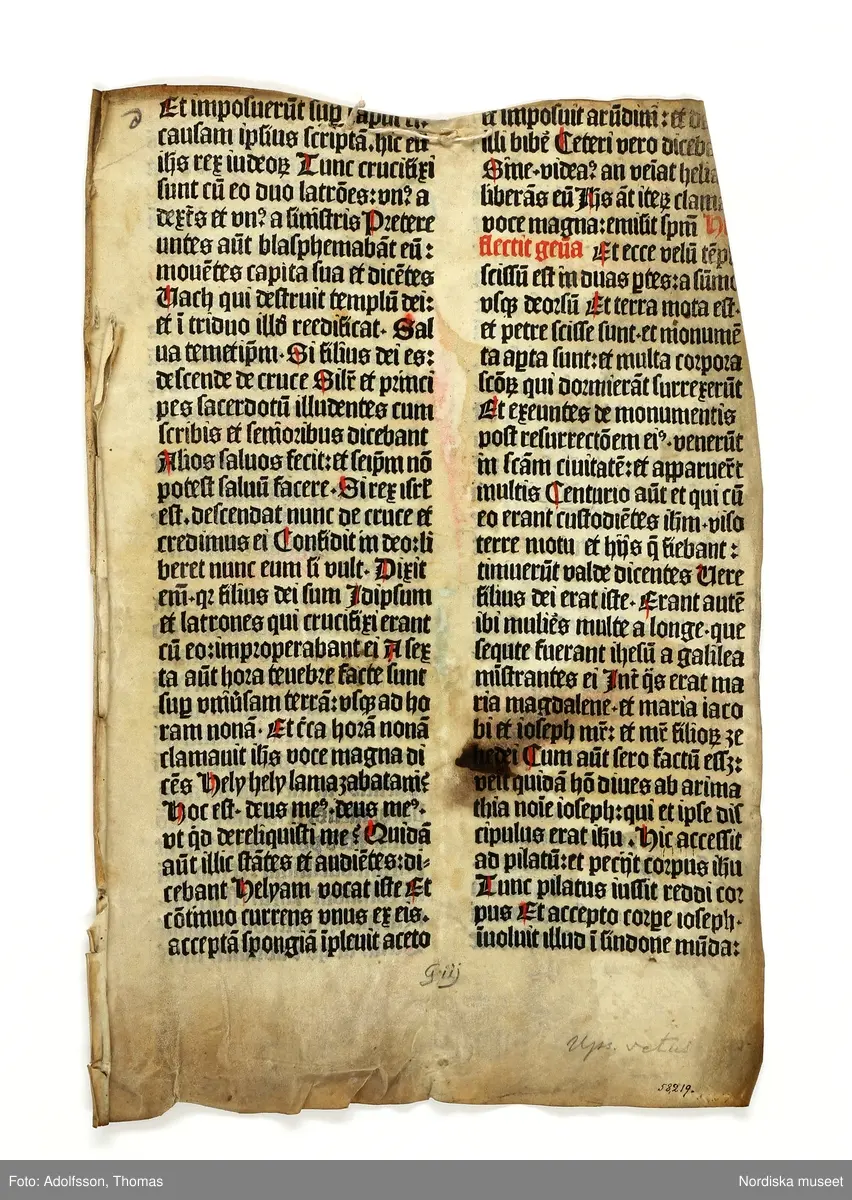 Et imposuerūt sup
causam ipsius scriptā. hic est
ihs rex iudeoꝝ Tunc crucifixi
sunt cū eo duo latrōes: vnꝰ a
dext̄s et vnꝰ a sinistris Pretere
untes aūt blasphemabāt eū:
mouētes capita sua et dicētes
Vach qui destruit templū dei:
et ī triduo illd̄ reedificat. Sal
ua temetip̄m. Si filius dei es:
descende de cruce Silr̄ et princi
pes sacerdotū illudentes cum
scribis et senioribus dicebant
Alios saluos fecit: et seip̄m nō
potest saluū facere. Si rex isrl̄
est. descendat nunc de cruce et
credimus ei Confidit in deo: li
beret nunc eum si vult. Dixit
em̄. qꝛ filius dei sum Idipsum
et latrones qui crucifixi erant
cū eo: improperabant ei A sex
ta aūt hora tenebre facte sunt
sup vniūsam terrā: vsqꝫ ad ho
ram nonā. Et c̄ca horā nonā
clamauit ihs voce magna di
cēs Hely hely lamazabatani
Hoc est. deus meꝰ. deus meꝰ.
vt qd̄ dereliquisti me? Quidā
aūt illic stātes et audiētes: di-
cebant Helyam vocat iste Et
cōtinuo currens vnus ex eis.
acceptā spongiā īpleuit aceto
et imposuit arūdini: et
illi bibē Ceteri vero diceb
Sine. videaꝰ an veīat helia
liberās eū Ihs āt iteꝝ clam
voce magna: emisit spm̄
flectit geūa Et ecce velū tēp
scissū est in duas ꝑtes: a sūmo
vsqꝫ deorsū Et terra mota est.
et petre scisse sunt. et monumē
ta aꝑta sunt: et multa corpora
scōꝝ qui dormierāt surrexerūt
Et exeuntes de monumentis
post resurrectōem eiꝰ. venerūt
in scām ciuitatē: et apparuer̄t
multis Centurio aūt et qui cū
eo erant custodiētes ihm̄. viso
terre motu et hijs q̄ fiebant:
timuerūt valde dicentes Vere
filius dei erat iste. Erant autē
ibi mulieres multe a longe. que
sequte fuerant ihesū a galilea
ministrantes ei Int̄ q̄s erat ma
ria magdalene. et maria iaco
bi et ioseph mr̄: et mr̄ filioꝝ ze
bedei Cum aūt sero factū essꝫ:
venit quidā hō diues ab arima
thia noīe ioseph: qui et ipse dis
cipulus erat ihu. Hic accessit
ad pilatū: et pecijt corpus ihu
Tunc pilatus iussit reddi cor
pus Et accepto corꝑe ioseph.
īuoluit illud ī sindone mūda:
G iij
Ups. vetus
58,219.
Foto: Adolfsson, Thomas
Nordiska museet